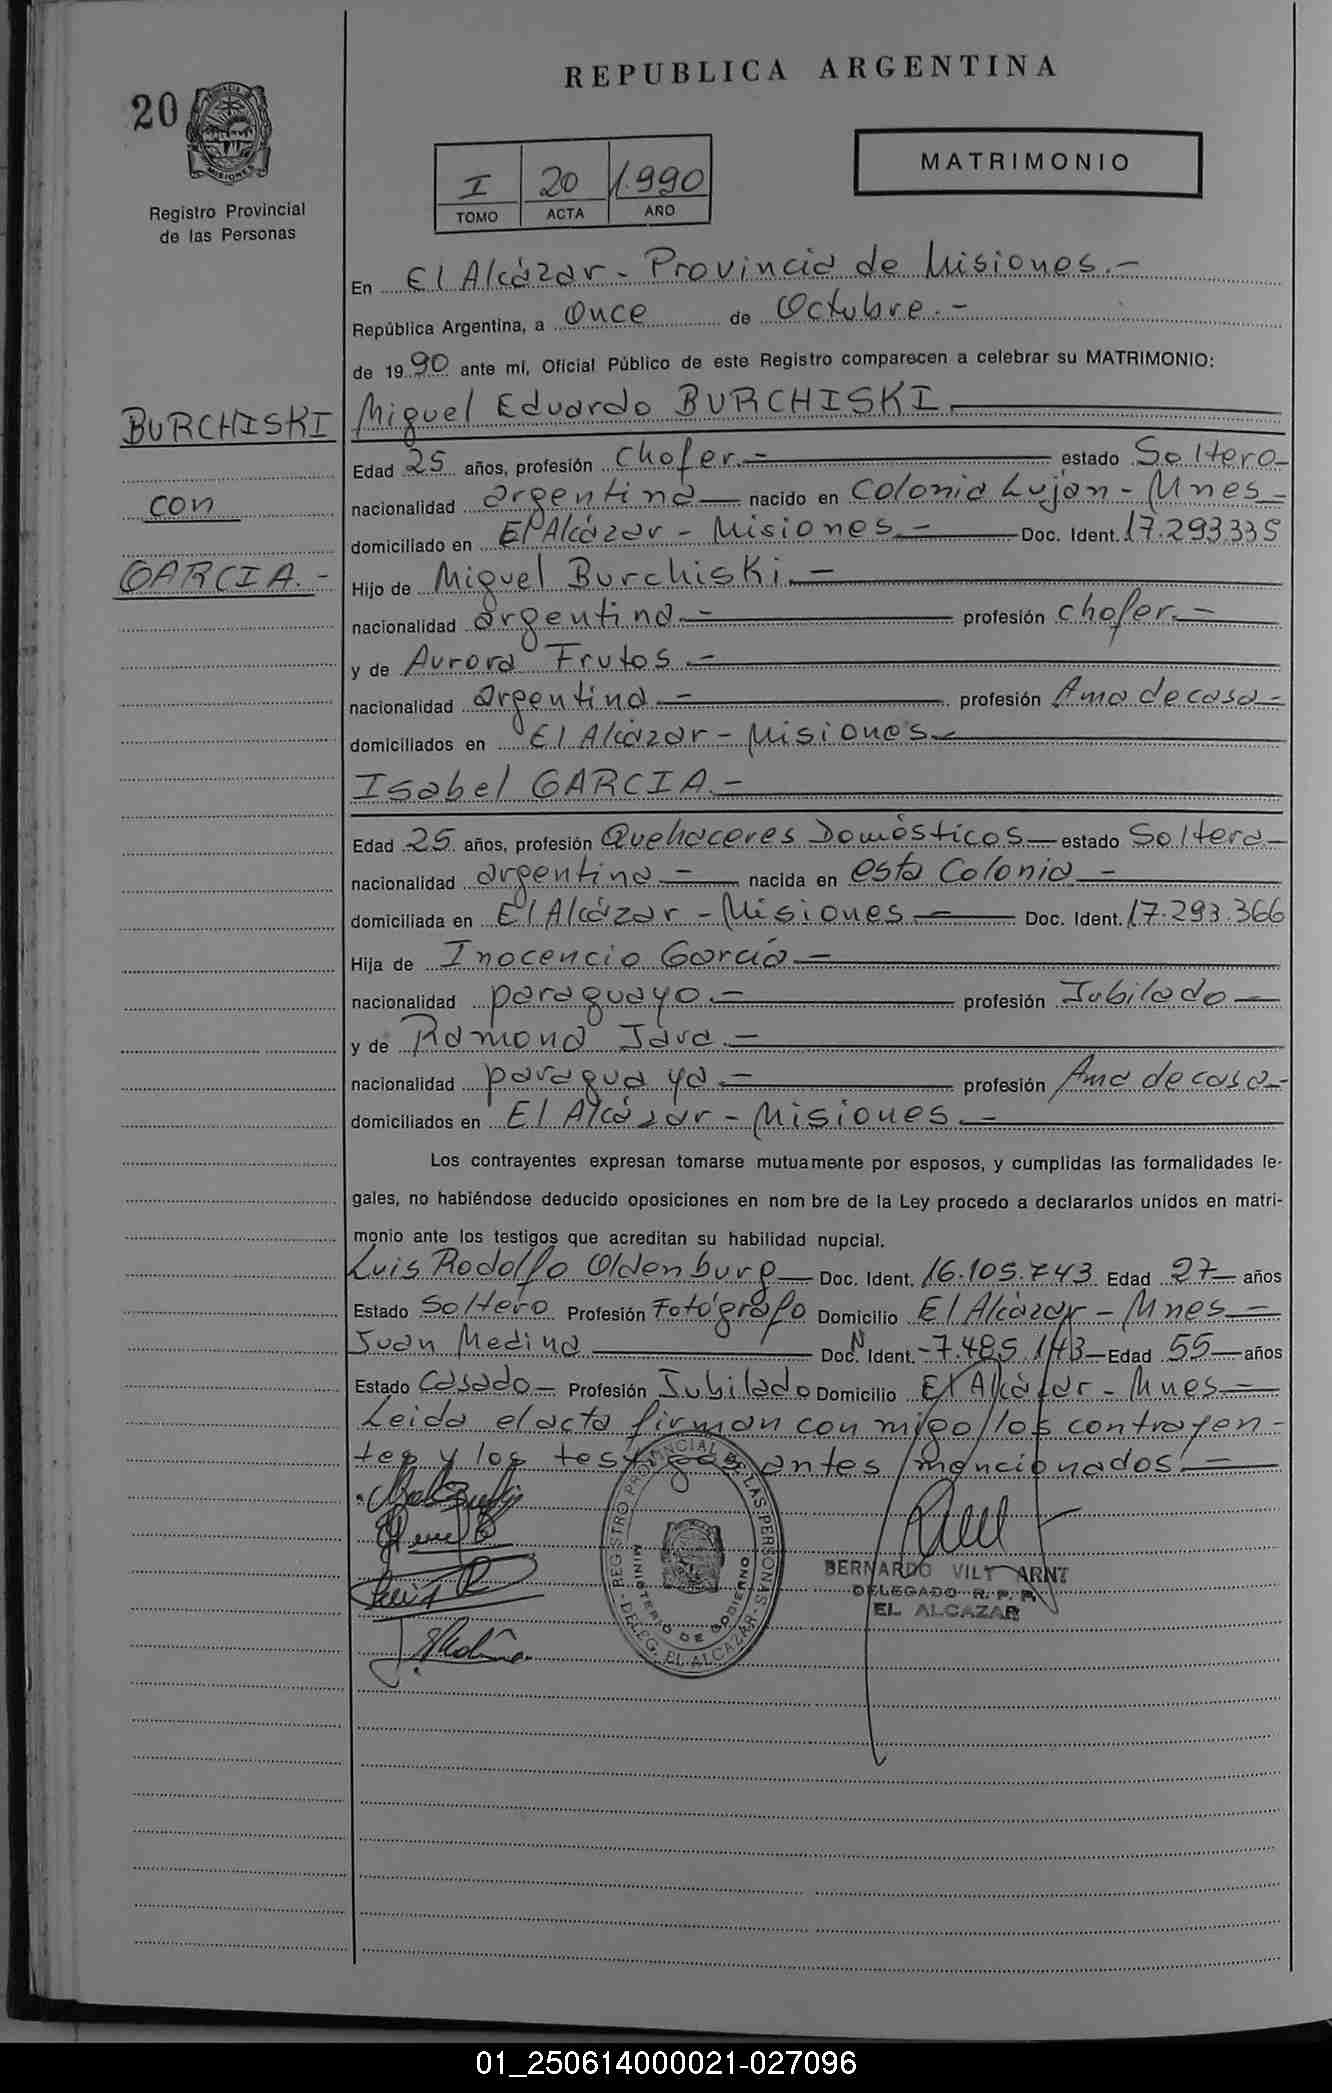 REPUBLICA ARGENTINA
20
PROVINCIA DE
MISIONES
Registro Provincial
de las Personas
I 20 1.990
TOMO ACTA AÑO
MATRIMONIO
En El Alcázar - Provincia de Misiones.-
República Argentina, a Once de Octubre.-
de 1990 ante mí, Oficial Público de este Registro comparecen a celebrar su MATRIMONIO:
BURCHISKI
con
GARCIA.-
Miguel Eduardo BURCHISKI
Edad 25 años, profesión Chofer.- estado Soltero-
nacionalidad argentina- nacido en Colonia Lujan - Mnes-
domiciliado en El Alcázar - Misiones.- Doc. Ident. 17.293.335
Hijo de Miguel Burchiski.-
nacionalidad argentina.- profesión chofer.-
y de Aurora Frutos.-
nacionalidad argentina.- profesión Ama de casa-
domiciliados en El Alcázar - Misiones-
Isabel GARCIA.-
Edad 25 años, profesión Quehaceres Domésticos- estado Soltera-
nacionalidad argentina- nacida en esta Colonia-
domiciliada en El Alcázar - Misiones- Doc. Ident. 17.293.366
Hija de Inocencio García-
nacionalidad paraguayo.- profesión Jubilado-
y de Ramona Jara.-
nacionalidad paraguaya- profesión Ama de casa-
domiciliados en El Alcázar - Misiones.-
Los contrayentes expresan tomarse mutuamente por esposos, y cumplidas las formalidades le-
gales, no habiéndose deducido oposiciones en nom bre de la Ley procedo a declararlos unidos en matri-
monio ante los testigos que acreditan su habilidad nupcial.
Luis Rodolfo Oldenburg- Doc. Ident. 16.105.743 Edad 27- años
Estado Soltero Profesión Fotógrafo Domicilio El Alcázar - Mnes-
Juan Medina Doc. Ident. N-7.485.143- Edad 55- años
Estado Casado- Profesión Jubilado Domicilio El Alcázar - Mnes-
Leida el acta firman con migo los contrayen-
tes y los testigos antes mencionados.-
REGISTRO PROVINCIAL DE LAS PERSONAS
MINISTERIO DE GOBIERNO
- DELEG. EL ALCAZAR -
BERNARDO VILT ARNT
DELEGADO R. P. P.
EL ALCAZAR
01_250614000021-027096